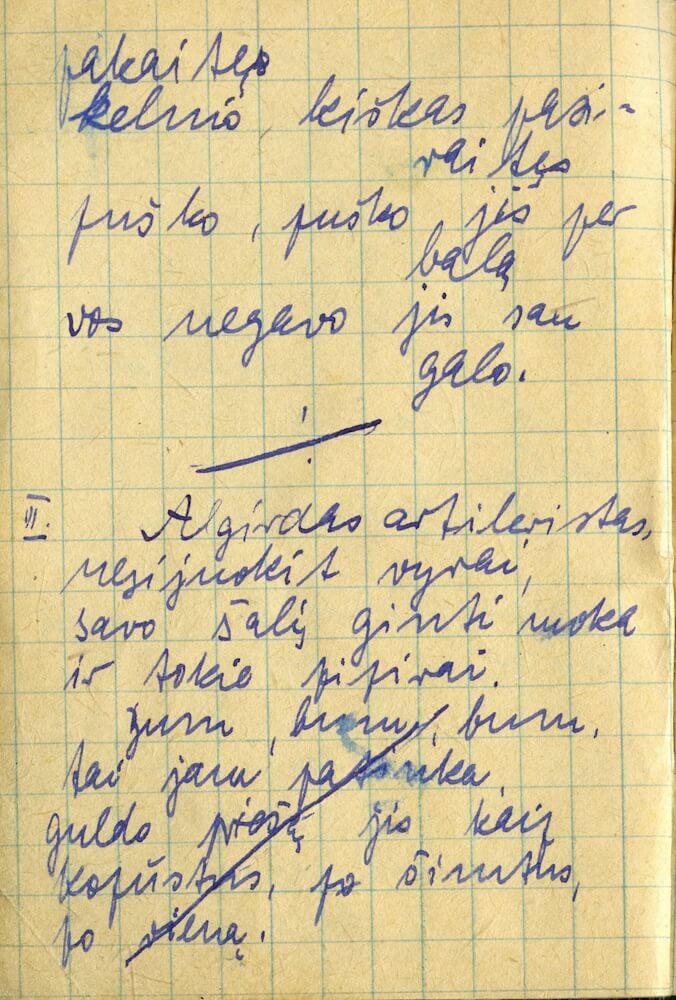 pakaitęs
kelnio, kiškas pasi-
raitęs
puško, puško jis per
balą
vos negavo jis sau
galo.
VI. Algirdas artileristas,
nesijuokit vyrai,
savo šalį ginti moka
ir tokie pipirai.
Zum, bum, bum,
tai jam patinka
guldo priešą jis kaip
kopūstus, po šimtus,
po vieną.